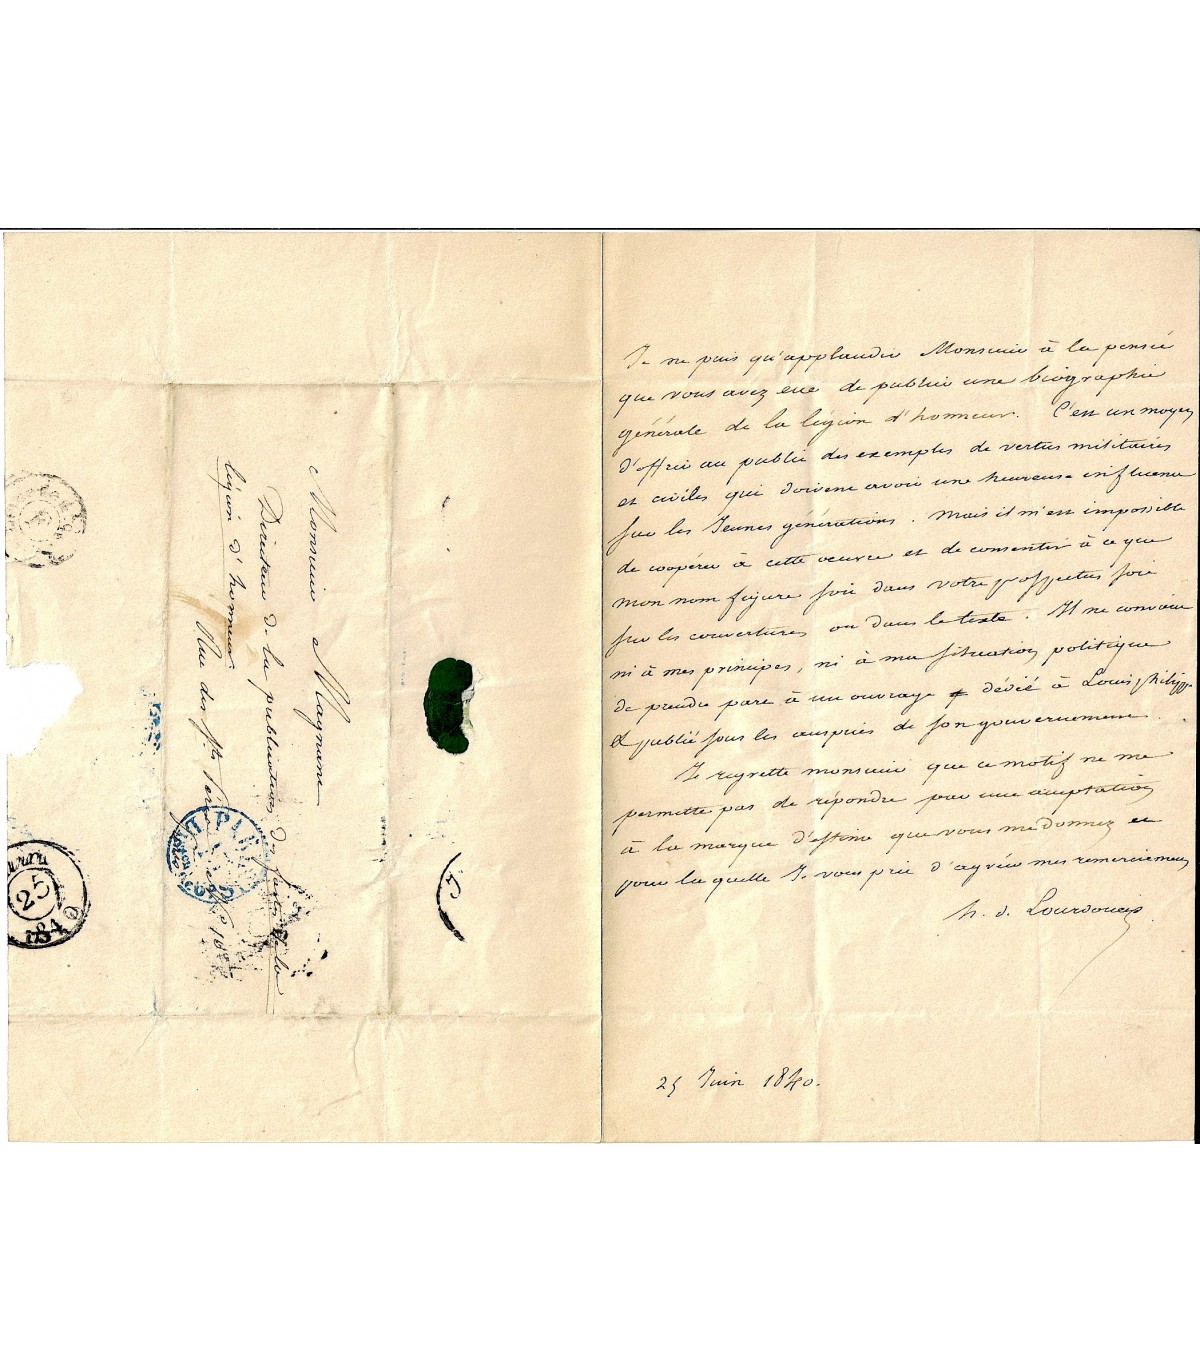 Monsieur Magnant
Directeur de la publication des fastes de la
légion d'honneur
Rue des
PARIS
25
184
Je ne puis qu'applaudir Monsieur à la pensée
que vous avez eue de publier une biographie
générale de la légion d'honneur. C'est un moyen
d'offrir au public des exemples de vertus militaires
et civiles qui doivent avoir une heureuse influence
sur les Jeunes générations. Mais il m'est impossible
de coopérer à cette oeuvre et de consentir à ce que
mon nom figure soit dans votre prospectus soit
sur les couvertures ou dans le texte. Il ne convient
ni à mes principes, ni à ma situation politique
de prendre part à un ouvrage dédié à Louis philippe
et publié sous les auspices de son gouvernement.
Je regrette monsieur que ce motif ne me
permette pas de répondre par une acceptation
à la marque d'estime que vous me donnez et
pour la quelle Je vous prie d'agréer mes remerciemens
h. d. Lourdoueix
25 Juin 1840.